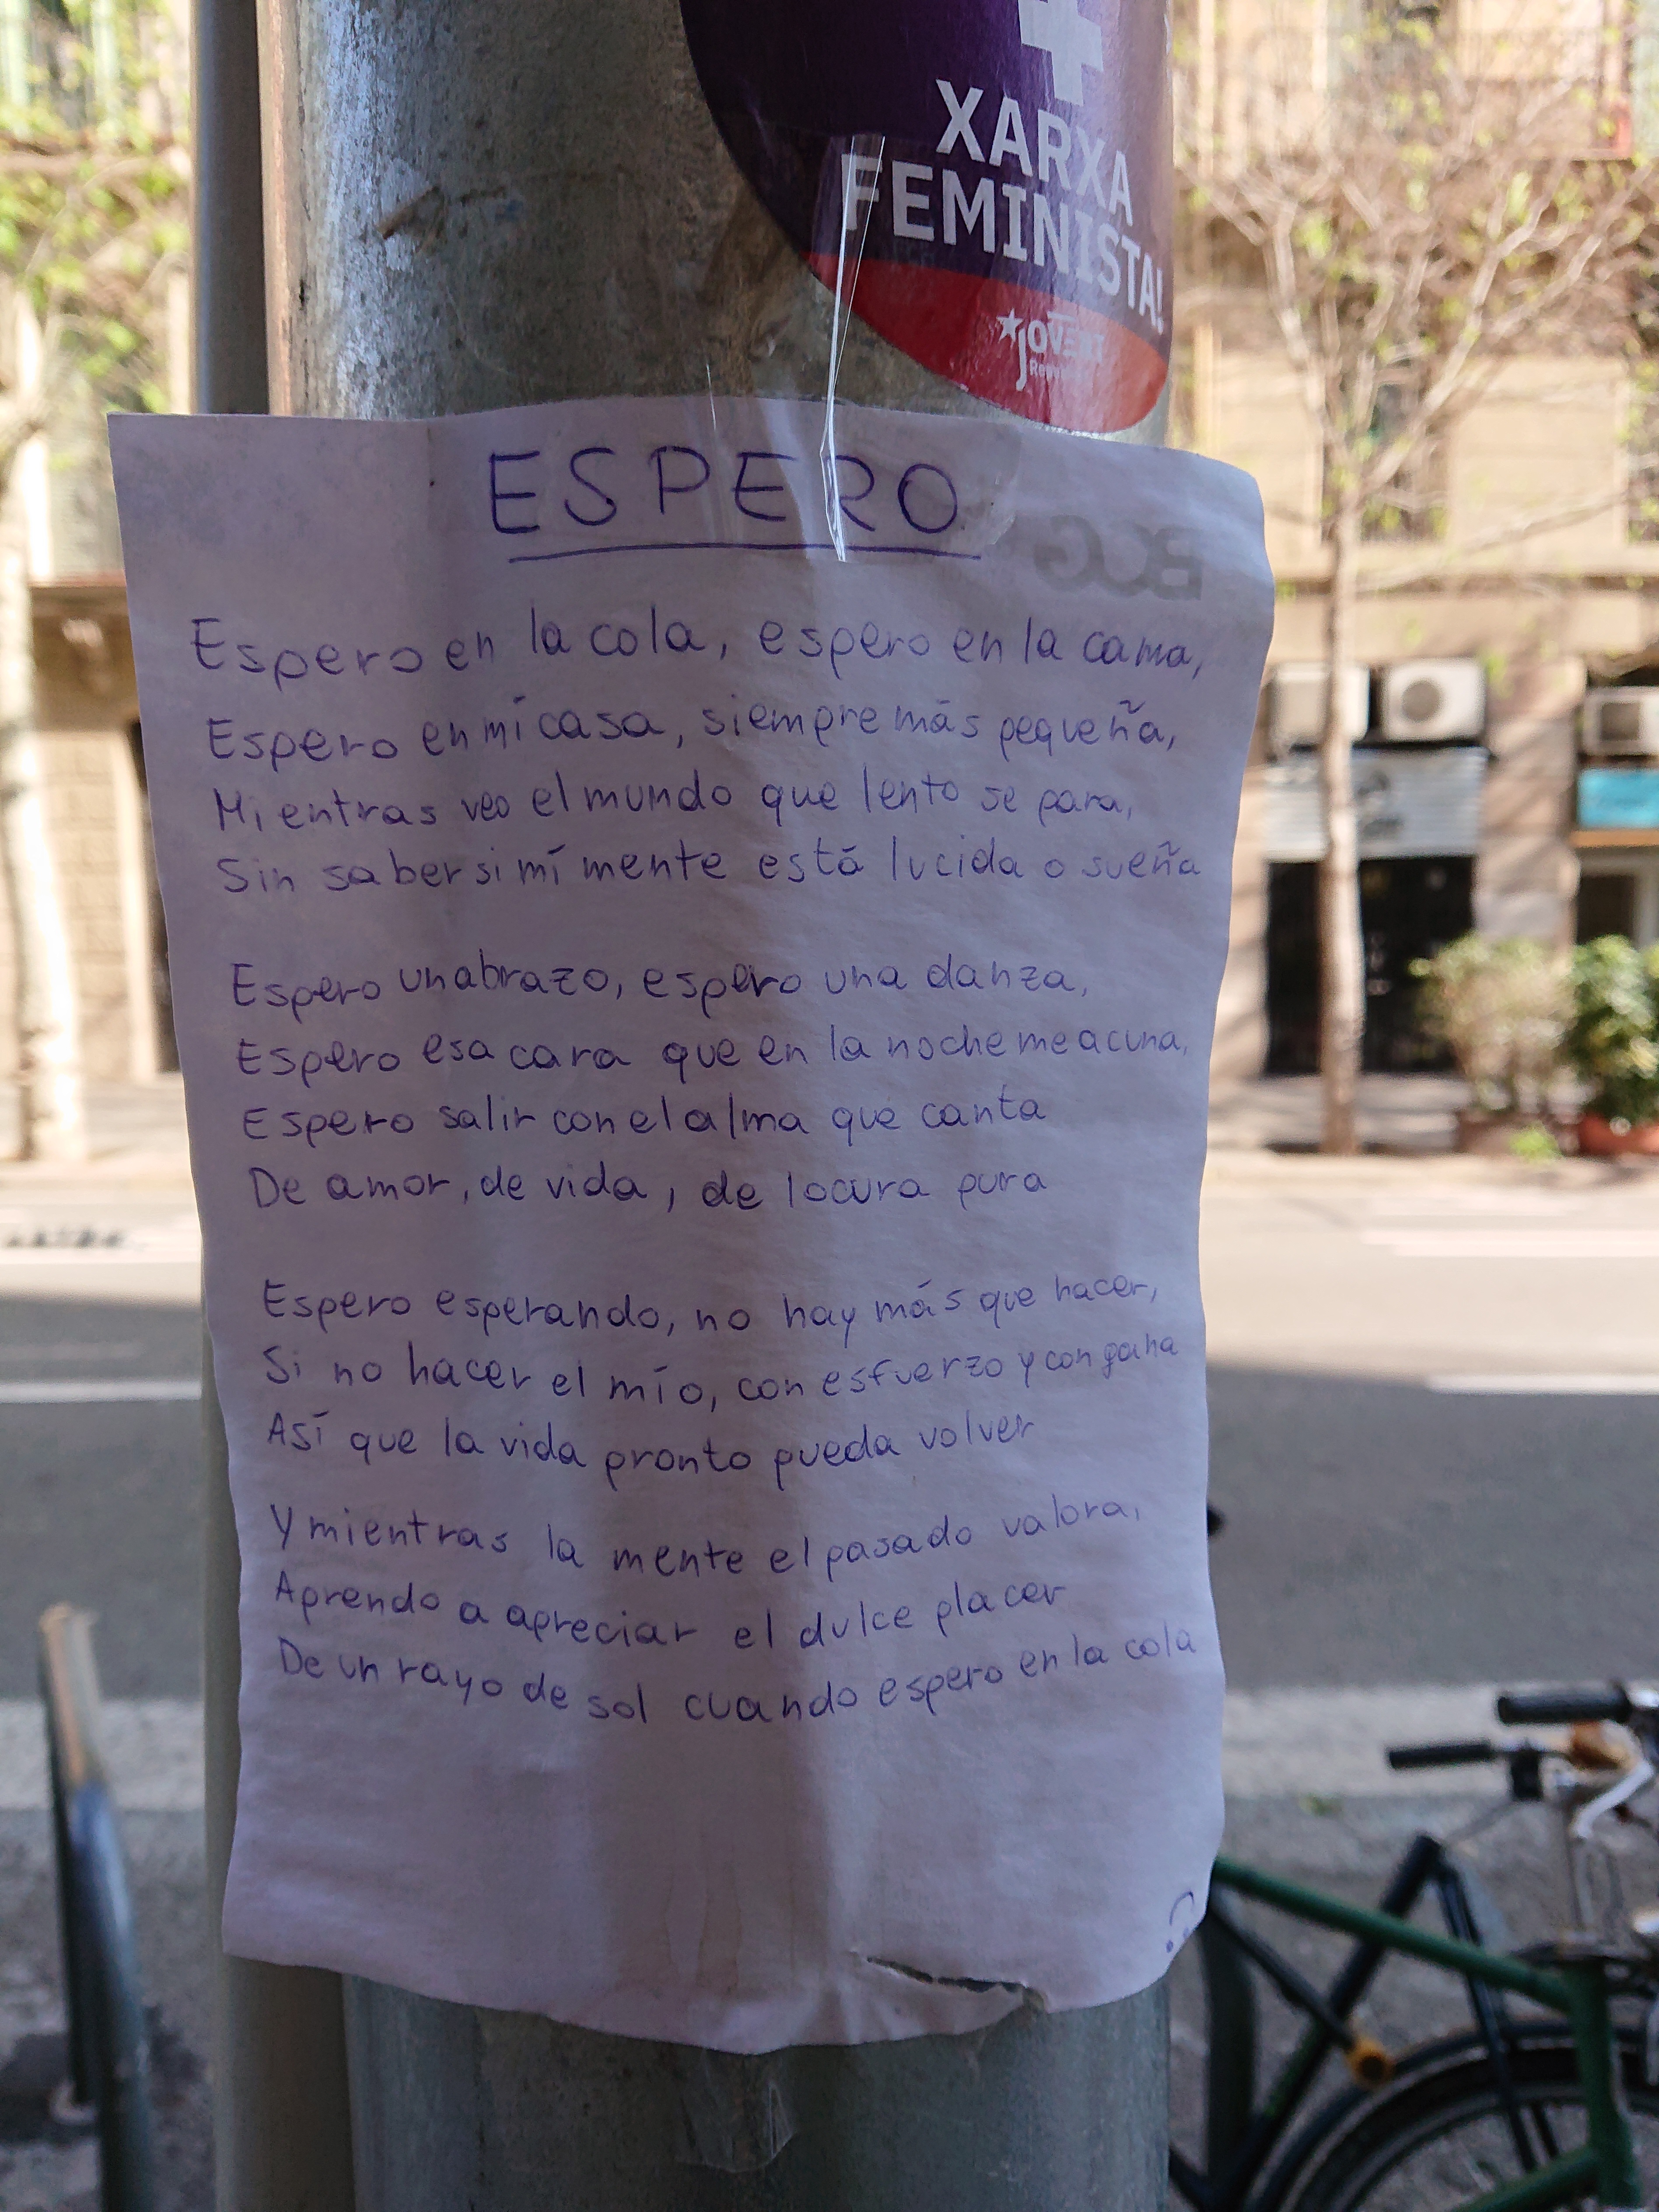 XARXA
FEMINISTA!
JOVENT
ESPERO
BCG
Espero en la cola, espero en la cama,
Espero en mí casa, siempre más pequeña,
Mientras veo el mundo que lento se para,
Sin saber si mí mente está lucida o sueña
Espero un abrazo, espero una danza,
Espero esa cara que en la noche me acuna,
Espero salir con el alma que canta
De amor, de vida, de locura pura
Espero esperando, no hay más que hacer,
Si no hacer el mío, con esfuerzo y con gana
Así que la vida pronto pueda volver
Y mientras la mente el pasado valora,
Aprendo a apreciar el dulce placer
De un rayo de sol cuando espero en la cola